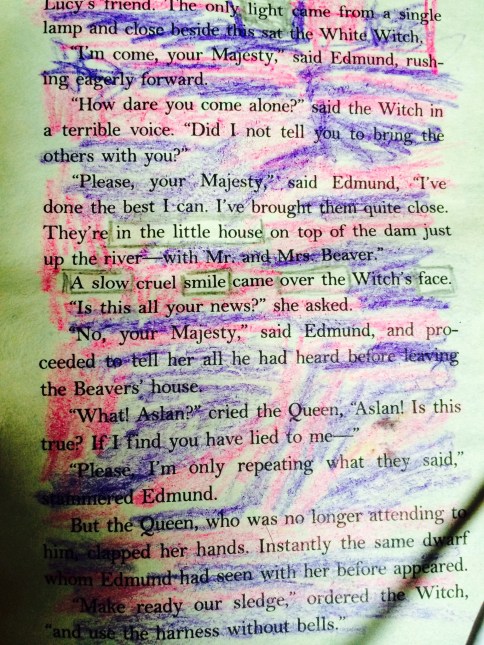 Lucy's friend. The only light came from a single
lamp and close beside this sat the White Witch.
"I'm come, your Majesty," said Edmund, rush-
ing eagerly forward.
"How dare you come alone?" said the Witch in
a terrible voice. "Did I not tell you to bring the
others with you?"
"Please, your Majesty," said Edmund, "I've
done the best I can. I've brought them quite close.
They're in the little house on top of the dam just
up the river—with Mr. and Mrs. Beaver."
A slow cruel smile came over the Witch's face.
"Is this all your news?" she asked.
"No, your Majesty," said Edmund, and pro-
ceeded to tell her all he had heard before leaving
the Beavers' house.
"What! Aslan?" cried the Queen, "Aslan! Is this
true? If I find you have lied to me—"
"Please, I'm only repeating what they said,"
stammered Edmund.
But the Queen, who was no longer attending to
him, clapped her hands. Instantly the same dwarf
whom Edmund had seen with her before appeared.
"Make ready our sledge," ordered the Witch,
"and use the harness without bells."